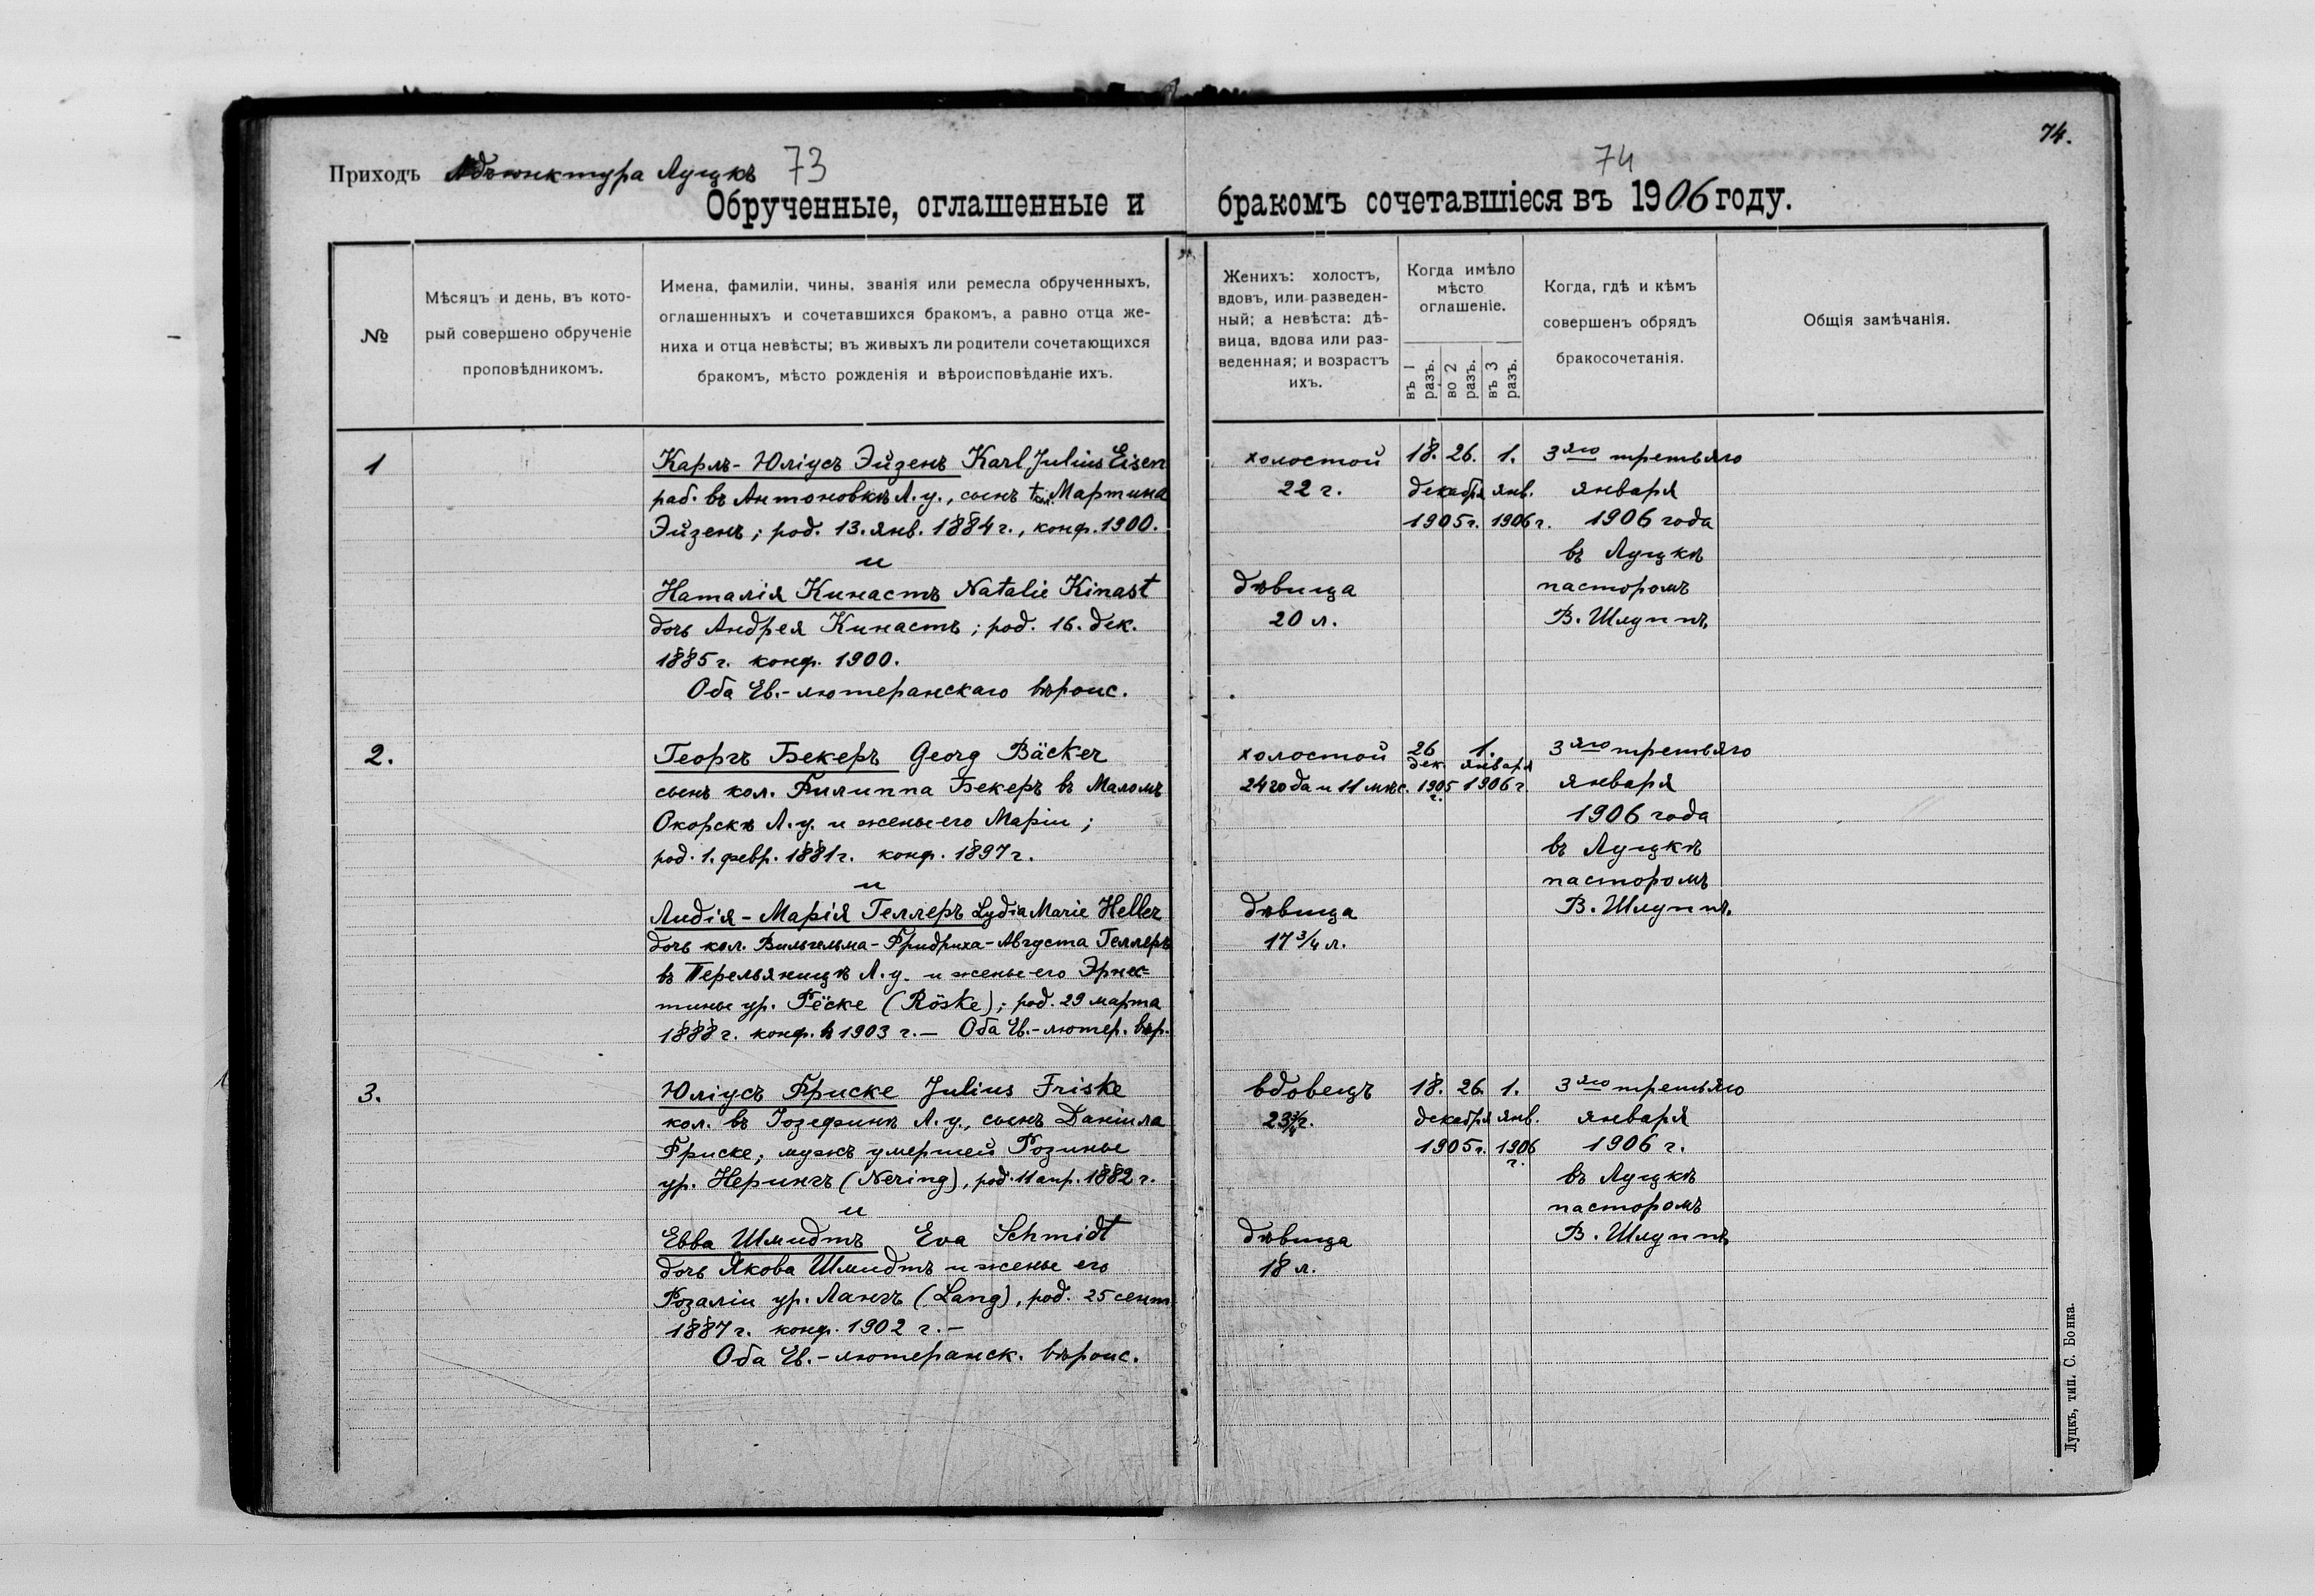 74.
Приходъ Адъюнктура Луцкъ 73
74
Обрученные, оглашенные и бракомъ сочетавшіеся въ 1906 году.
№
Мѣсяцъ и день, въ кото-
рый совершено обрученіе
проповѣдникомъ.
Имена, фамиліи, чины, званія или ремесла обрученныхъ,
оглашенныхъ и сочетавшихся бракомъ, а равно отца же-
ниха и отца невѣсты; въ живыхъ ли родители сочетающихся
бракомъ, мѣсто рожденія и вѣроисповѣданіе ихъ.
Женихъ: холостъ,
вдовъ, или разведен-
ный; а невѣста: дѣ-
вица, вдова или раз-
веденная; и возрастъ
ихъ.
Когда имѣло
мѣсто
оглашеніе.
въ 1 разъ.
во 2 разъ.
въ 3 разъ.
Когда, гдѣ и кѣмъ
совершенъ обрядъ
бракосочетанія.
Общія замѣчанія.
1
Карлъ-Юліусъ Эйзенъ Karl Julius Eisen
раб. въ Антоновкѣ Л. у., сынъ † кол. Мартина
Эйзенъ; род. 13. янв. 1884 г., конф. 1900.
и
Наталія Кинастъ Natalie Kinast
дочь Андрея Кинастъ; род. 16. дек.
1885 г. конф. 1900.
Оба Ев.-лютеранскаго вѣроис.
холостой
22 г.
дѣвица
20 л.
18. 26. 1.
декабря янв.
1905 г. 1906 г.
3яго третьяго
января
1906 года
въ Луцкѣ
пасторомъ
В. Шлуппъ
2.
Георгъ Бекеръ Georg Bäcker
сынъ кол. Филиппа Бекеръ въ Маломъ
Окорскѣ Л. у. и жены его Маріи;
род. 1. февр. 1881 г. конф. 1897 г.
и
Лидія-Марія Геллеръ Lydia Marie Heller
дочь кол. Вильгельма-Фридриха-Августа Геллеръ
въ Терельяницѣ Л. у. и жены его Эрнес=
тины ур. Рёске (Röske); род. 29 марта
1888 г. конф. 1903 г. — Оба Ев.-лютер. вѣр.
холостой
24 года и 11 мѣс.
дѣвица
17 3/4 л.
26 1.
дек. января
1905 г. 1906 г.
3яго третьяго
января
1906 года
въ Луцкѣ
пасторомъ
В. Шлуппъ.
3.
Юліусъ Фриске Julius Friske
кол. въ Іозефинѣ Л. у., сынъ Даніила
Фриске; мужъ умершей Розины
ур. Нерингъ (Nering), род. 11 апр. 1882 г.
и
Евва Шмидтъ Eva Schmidt
дочь Якова Шмидтъ и жены его
Розаліи ур. Лангъ (Lang), род. 25 сент.
1887 г. конф. 1902 г. —
Оба Ев.-лютеранск. вѣроис.
вдовецъ
23 3/4 г.
дѣвица
18 л.
18. 26. 1.
декабря янв.
1905 г. 1906 г.
3яго третьяго
января
1906 г.
въ Луцкѣ
пасторомъ
В. Шлуппъ
Луцкъ, тип. С. Бонка.